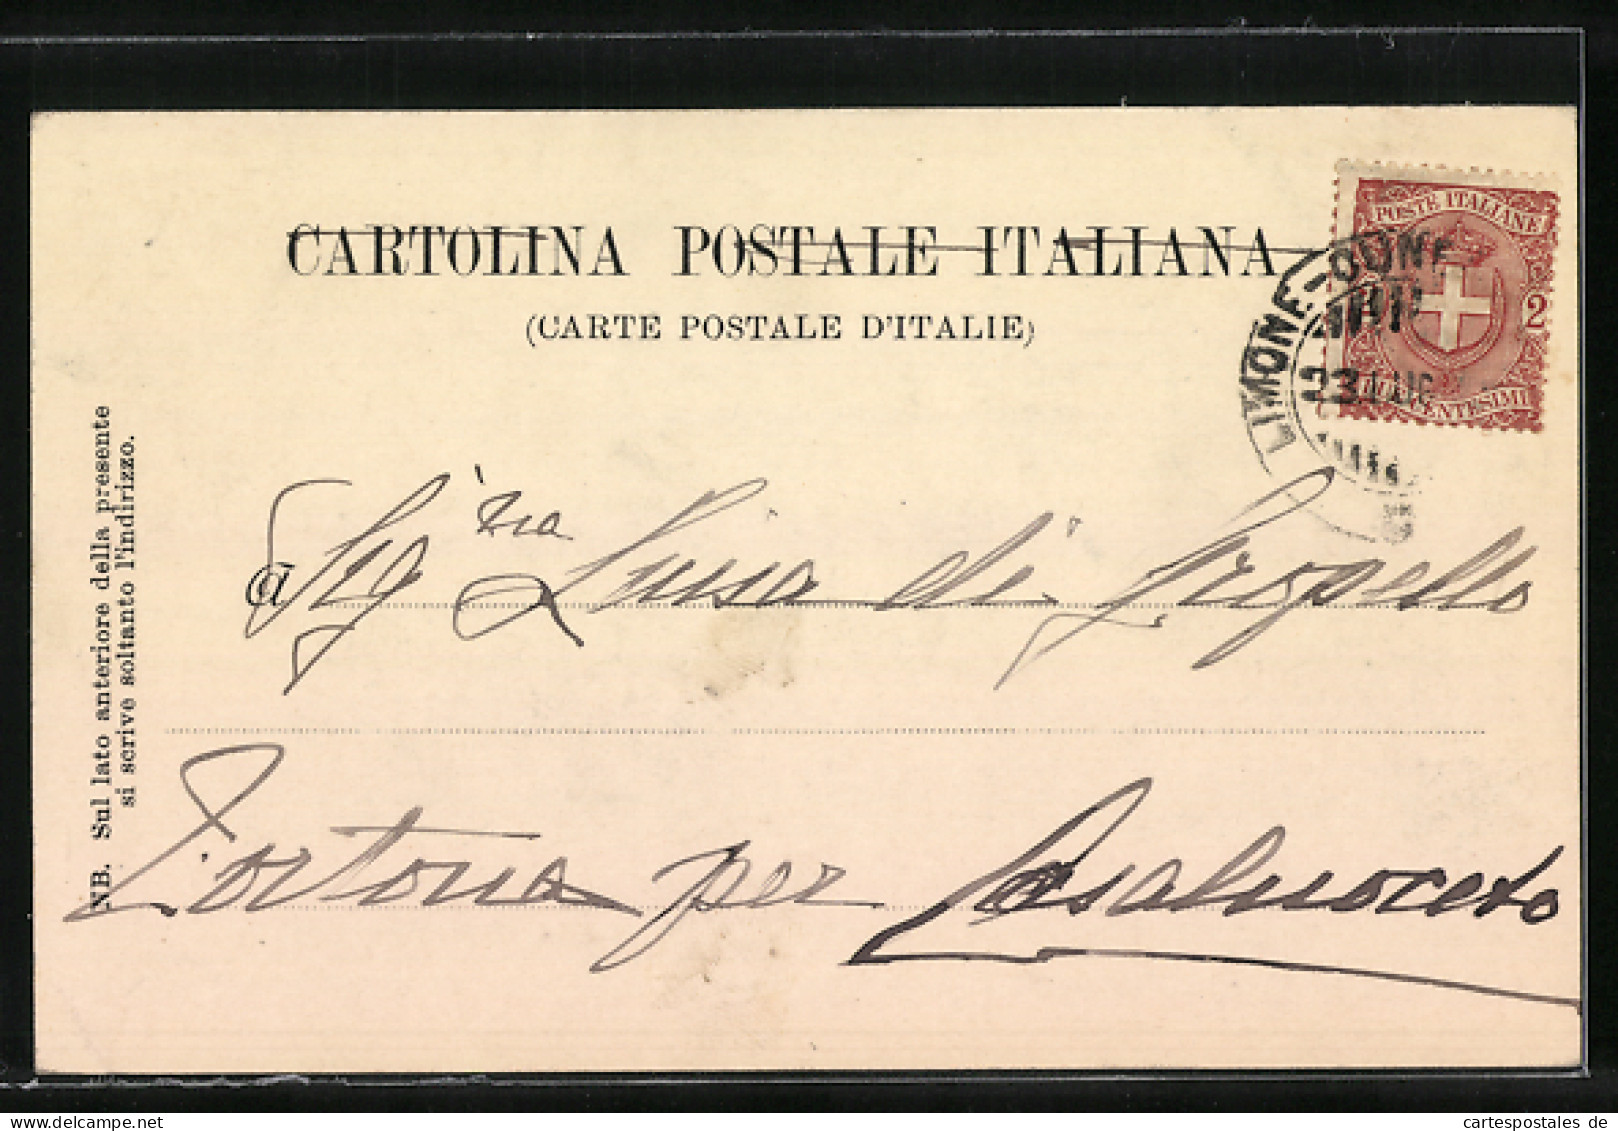 CARTOLINA POSTALE ITALIANA
(CARTE POSTALE D'ITALIE)
POSTE ITALIANE
2
CENTESIMI
LIMONE-CUNE
23 LUG
NB. Sul lato anteriore della presente
si scrive soltanto l'indirizzo.
a Sig.ra Luisa di Gropello
Tortona per Casalnoceto
cartespostales de - cartespostales.de